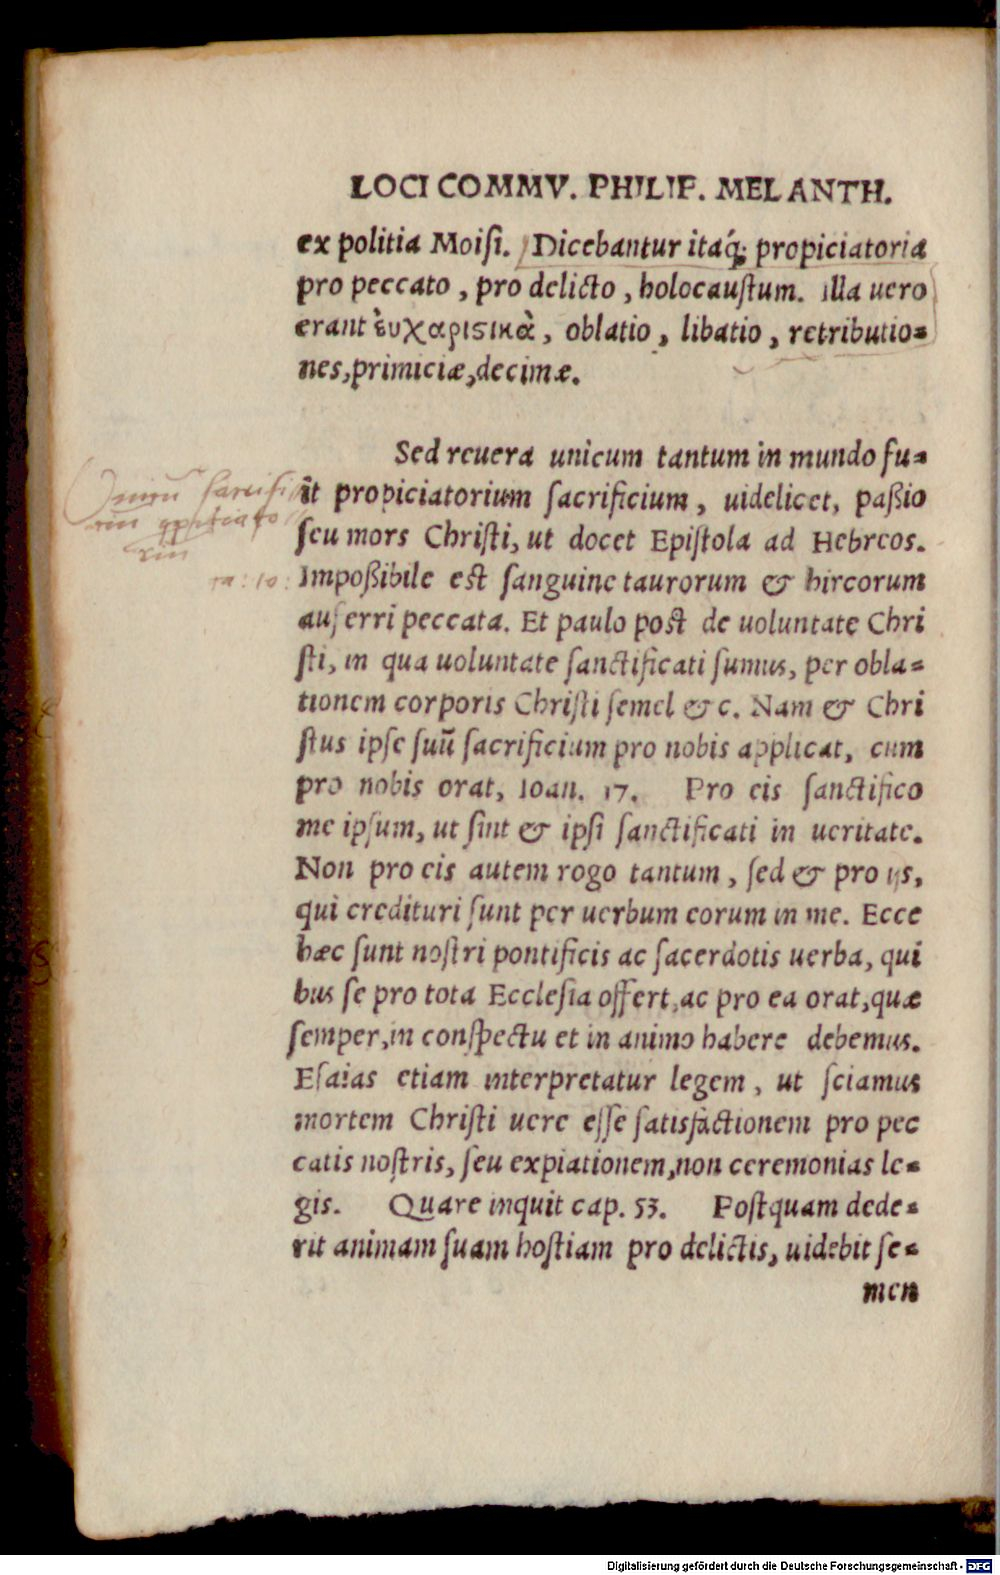 LOCI COMMV. PHILIP. MELANTH.
ex politia Moiſi. Dicebantur itaq́; propiciatoria
pro peccato, pro delicto, holocauſtum. illa uero
erant ἐυχαριϛικὰ, oblatio, libatio, retributio=
nes, primiciæ, decimæ.
Sed reuera unicum tantum in mundo fu=
it propiciatorium ſacrificium, uidelicet, paßio
ſeu mors Chriſti, ut docet Epiſtola ad Hebreos.
Impoßibile eſt ſanguine taurorum & hircorum
auferri peccata. Et paulo poſt de uoluntate Chri
ſti, in qua uoluntate ſanctificati ſumus, per obla=
tionem corporis Chriſti ſemel & c. Nam & Chri
ſtus ipſe ſuū ſacrificium pro nobis applicat, cum
pro nobis orat, Ioan. 17. Pro eis ſanctifico
me ipſum, ut ſint & ipſi ſanctificati in ueritate.
Non pro eis autem rogo tantum, ſed & pro ijs,
qui credituri ſunt per uerbum eorum in me. Ecce
hæc ſunt noſtri pontificis ac ſacerdotis uerba, qui
bus ſe pro tota Eccleſia offert, ac pro ea orat, quæ
ſemper, in conſpectu et in animo habere debemus.
Eſaias etiam interpretatur legem, ut ſciamus
mortem Chriſti uere eſſe ſatisfactionem pro pec
catis noſtris, ſeu expiationem, non ceremonias le=
gis. Quare inquit cap. 53. Poſtquam dede=
rit animam ſuam hoſtiam pro delictis, uidebit ſe=
men
Digitalisierung gefördert durch die Deutsche Forschungsgemeinschaft - DFG